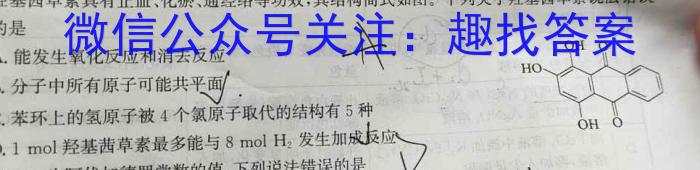 羟基茜草素具有止血、化瘀、通经络等功效,其结构简式如图。下列关于羟基茜草素说法错误
的是
微信公众号关注:趣找答案
A.能发生氧化反应和消去反应
分子中所有原子可能共平面
C.苯环上的氢原子被4个氯原子取代的结构有5种
D.1 mol羟基茜草素最多能与8 mol H₂发生加成反应
下列说法错误的是
O OH
HO
OH O